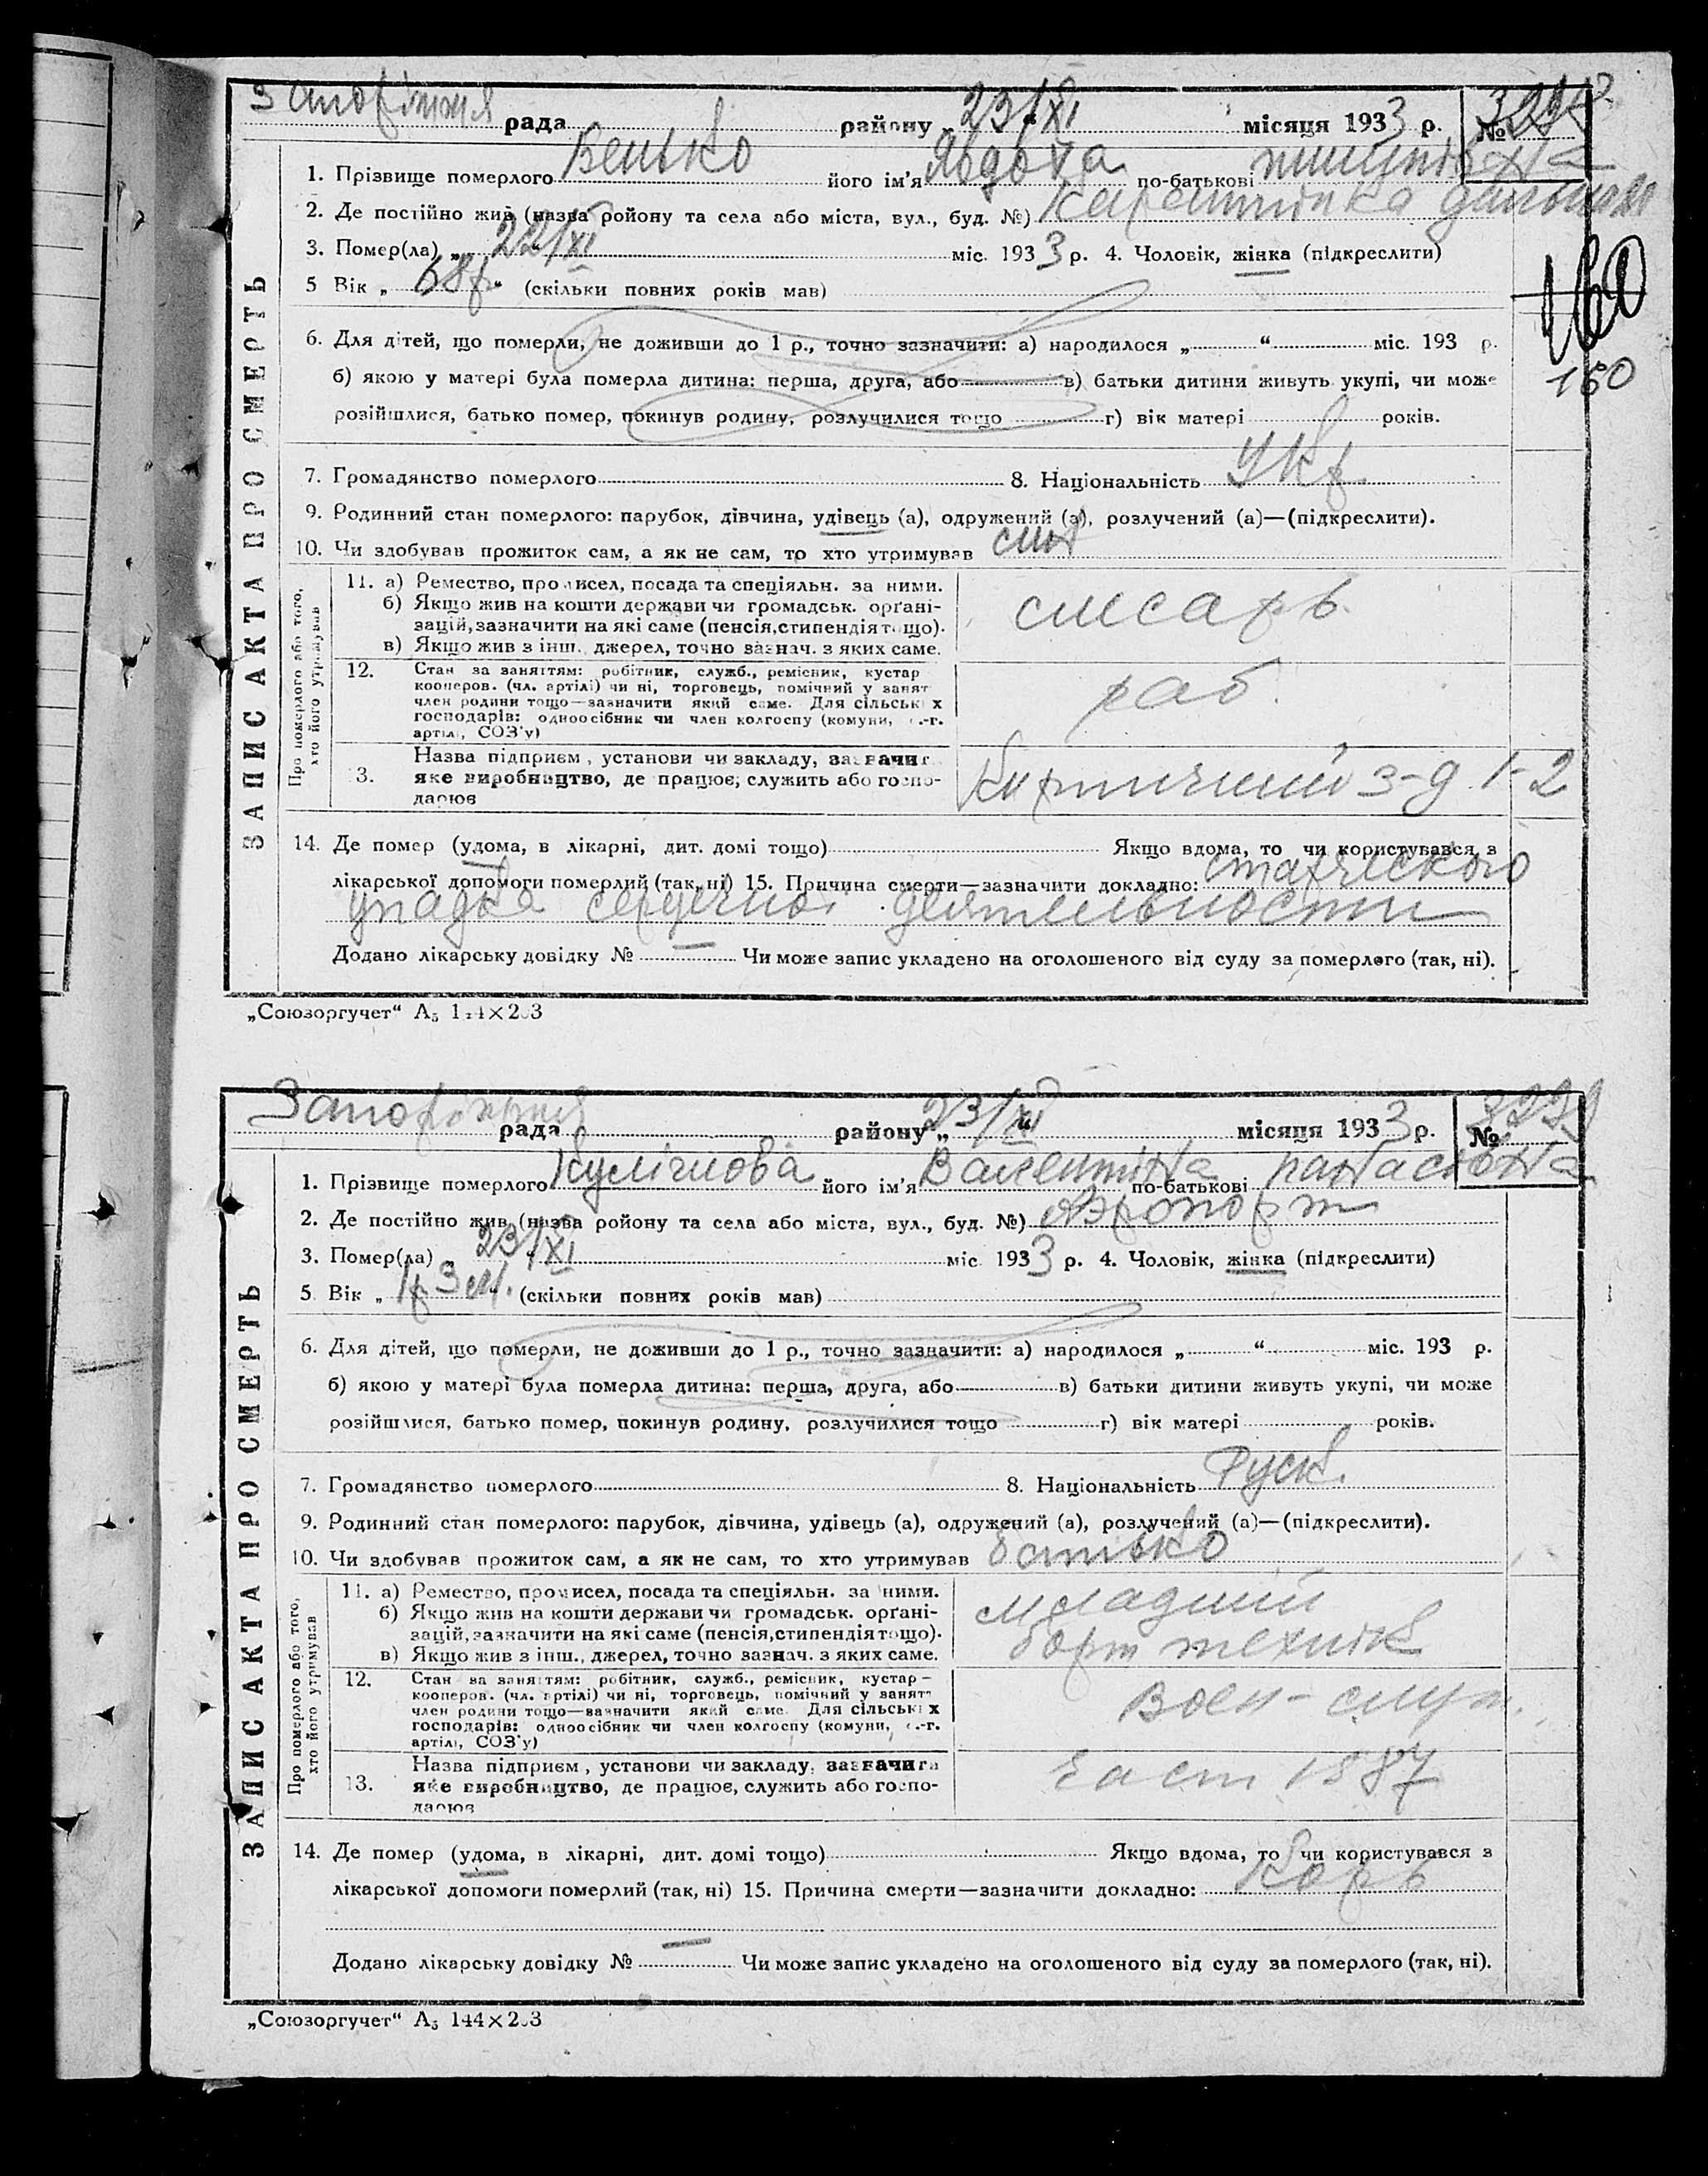 Запоріжжя рада району „23/XI місяця 1933 р. №
1. Прізвище померлого Венько його ім'я Явдоха по-батькові
2. Де постійно жив (назва ройону та села або міста, вул., буд. №) Карантинка
3. Помер(ла) „22/XI міс. 1933 р. 4. Чоловік, жінка (підкреслити)
5 Вік „68р.“ (скільки повних років мав)
160
6. Для дітей, що померли, не доживши до 1 р., точно зазначити: а) народилося „ “ міс. 193 р.
150
б) якою у матері була померла дитина: перша, друга, або в) батьки дитини живуть укупі, чи може
розійшлися, батько помер, покинув родину, розлучилися тощо г) вік матері років.
7. Громадянство померлого 8. Національність Укр.
9. Родинний стан померлого: парубок, дівчина, удівець (а), одружений (а), розлучений (а)—(підкреслити).
10. Чи здобував прожиток сам, а як не сам, то хто утримував син
ЗАПИС АКТА ПРО СМЕРТЬ
Про померлого або того,
хто його утримував
11. а) Ремество, промисел, посада та спеціяльн. за ними.
б) Якщо жив на кошти держави чи громадськ. орґані-
зацій, зазначити на які саме (пенсія, стипендія тощо).
в) Якщо жив з інш. джерел, точно зазнач. з яких саме.
слесарь
12. Стан за заняттям: робітник, служб., ремісник, кустар
кооперов. (чл. артілі) чи ні, торговець, помічний у занят
член родини тощо—зазначити який саме. Для сільських
господарів: одноосібник чи член колгоспу (комуни, с.-г.
артілі, СОЗ'у)
раб.
13. Назва підприєм, установи чи закладу, зазначит
яке виробництво, де працює, служить або госпо-
дарює
Кирпичний з-д 1-2
14. Де помер (удома, в лікарні, дит. домі тощо) Якщо вдома, то чи користувався з
лікарської допомоги померлий (так, ні) 15. Причина смерти—зазначити докладно: старческого
упадка сердечной деятельности
Додано лікарську довідку № — Чи може запис укладено на оголошеного від суду за померлого (так, ні).
„Союзоргучет“ А5 144×203
Запоріжжя рада району „23/XI місяця 1933 р. № 3229
1. Прізвище померлого Кулігінова його ім'я Валентіна по-батькові Панасівна
2. Де постійно жив (назва ройону та села або міста, вул., буд. №) Аэропорт
3. Помер(ла) „23/XI міс. 1933 р. 4. Чоловік, жінка (підкреслити)
5 Вік „1р 3 м.“ (скільки повних років мав)
6. Для дітей, що померли, не доживши до 1 р., точно зазначити: а) народилося „ “ міс. 193 р.
б) якою у матері була померла дитина: перша, друга, або в) батьки дитини живуть укупі, чи може
розійшлися, батько помер, покинув родину, розлучилися тощо г) вік матері років.
7. Громадянство померлого 8. Національність Руск.
9. Родинний стан померлого: парубок, дівчина, удівець (а), одружений (а), розлучений (а)—(підкреслити).
10. Чи здобував прожиток сам, а як не сам, то хто утримував батько
ЗАПИС АКТА ПРО СМЕРТЬ
Про померлого або того,
хто його утримував
11. а) Ремество, промисел, посада та спеціяльн. за ними.
б) Якщо жив на кошти держави чи громадськ. орґані-
зацій, зазначити на які саме (пенсія, стипендія тощо).
в) Якщо жив з інш., джерел, точно зазнач. з яких саме.
младший
борт технік
12. Стан за заняттям: робітник, служб., ремісник, кустар—
кооперов. (чл. артілі) чи ні, торговець, помічний у занят
член родини тощо—зазначити який саме. Для сільських
господарів: одноосібник чи член колгоспу (комуни, с.-г.
артілі, СОЗ'у)
воен-служ.
13. Назва підприєм, установи чи закладу, зазначити
яке виробництво, де працює, служить або госпо-
дарює
1387
14. Де помер (удома, в лікарні, дит. домі тощо) Якщо вдома, то чи користувався з
лікарської допомоги померлий (так, ні) 15. Причина смерти—зазначити докладно: Корь
Додано лікарську довідку № — Чи може запис укладено на оголошеного від суду за померлого (так, ні).
„Союзоргучет“ А5 144×203